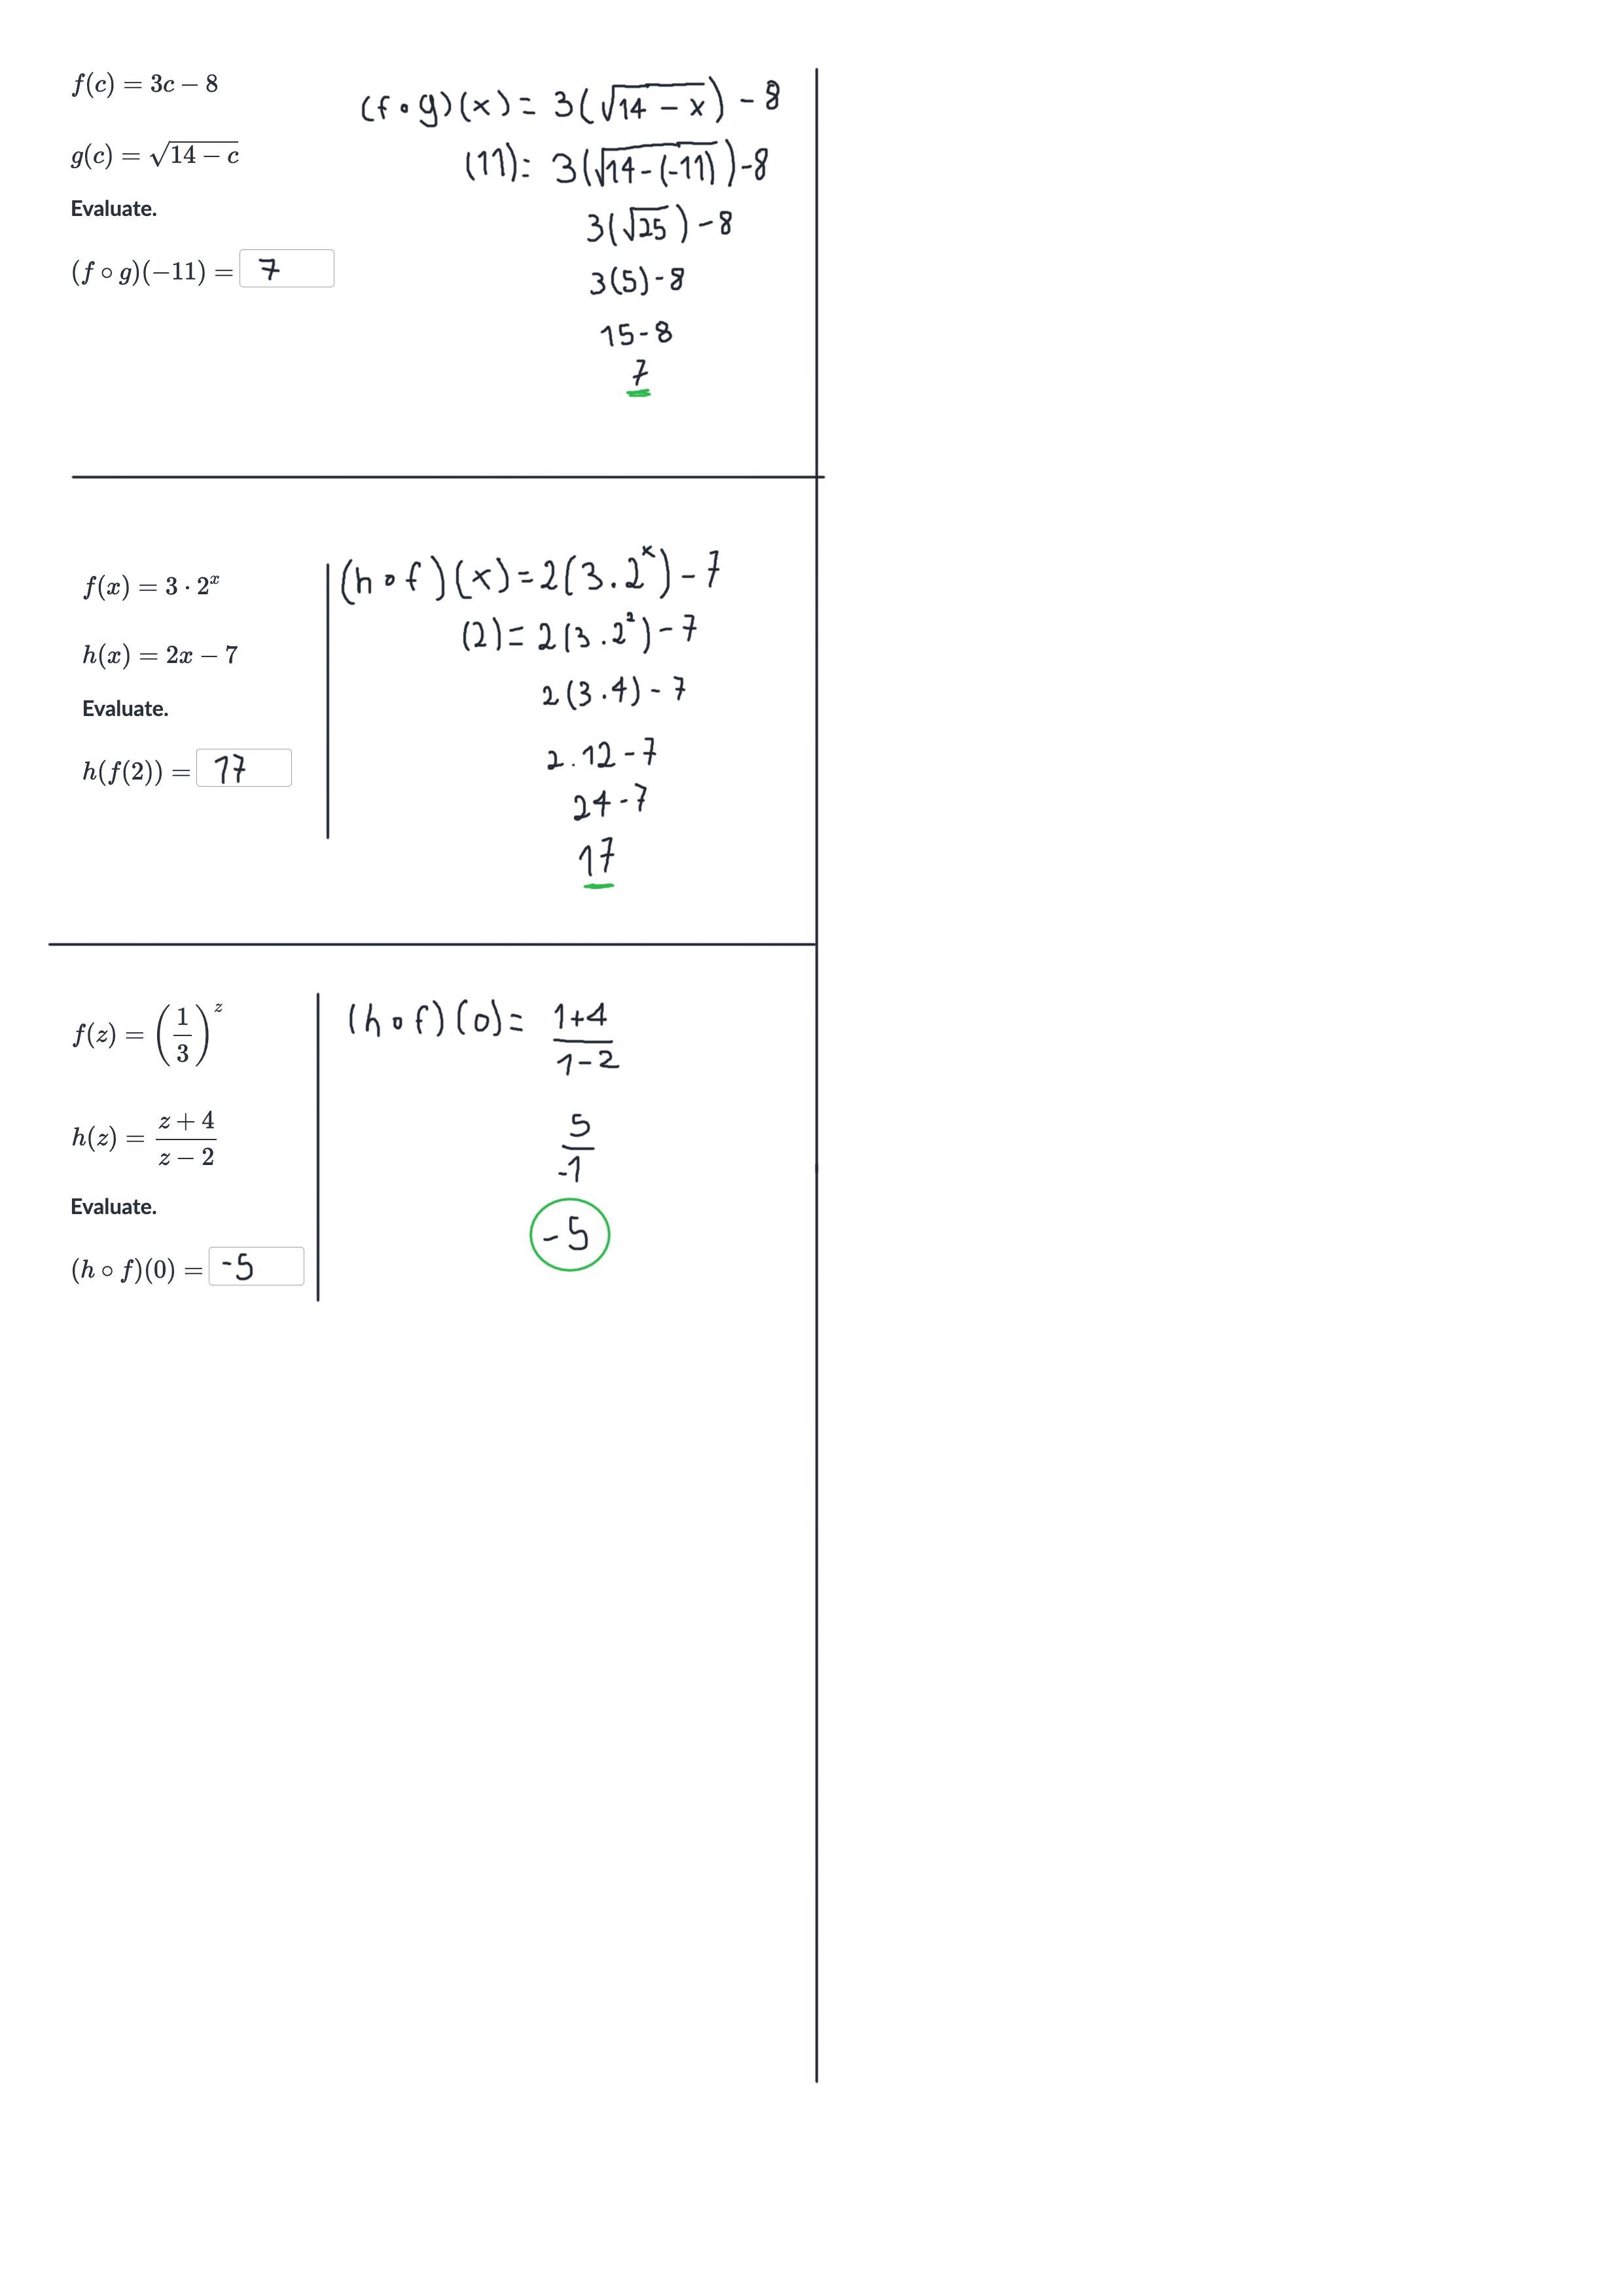 f(c) = 3c − 8
g(c) = √(14 − c)
Evaluate.
(f ∘ g)(−11) = 7
(f ∘ g)(x) = 3(√(14 − x)) − 8
(11) = 3(√(14-(-11))) -8
3(√25) − 8
3(5) - 8
15 - 8
7
f(x) = 3 · 2^x
h(x) = 2x − 7
Evaluate.
h(f(2)) = 17
(h ∘ f)(x) = 2(3 . 2^x) − 7
(2) = 2(3 . 2^2) − 7
2(3 . 4) - 7
2 . 12 - 7
24 - 7
17
f(z) = (1/3)^z
h(z) = (z + 4)/(z − 2)
Evaluate.
(h ∘ f)(0) = -5
(h ∘ f)(0) = (1+4)/(1-2)
5/-1
-5